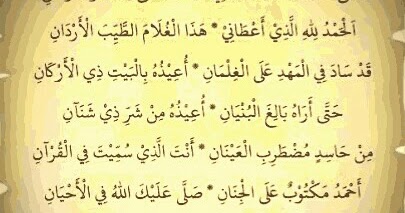 اَلْحَمْدُ لِلّٰهِ الَّذِيْ أَعْطَانِيْ * هَذَا الْغُلَامَ الطَّيِّبَ الْأَرْدَانِ
قَدْ سَادَ فِي الْمَهْدِ عَلَى الْغِلْمَانِ * أُعِيْذُهُ بِالْبَيْتِ ذِي الْأَرْكَانِ
حَتَّى أَرَاهُ بَالِغَ الْبُنْيَانِ * أُعِيْذُهُ مِنْ شَرِّ ذِيْ شَنَآنِ
مِنْ حَاسِدٍ مُضْطَرِبِ الْعَيْنَانِ * أَنْتَ الَّذِيْ سُمِّيْتَ فِي الْقُرْآنِ
أَحْمَدُ مَكْتُوْبٌ عَلَى الْجِنَانِ * صَلَّى عَلَيْكَ اللهُ فِي الْأَحْيَانِ